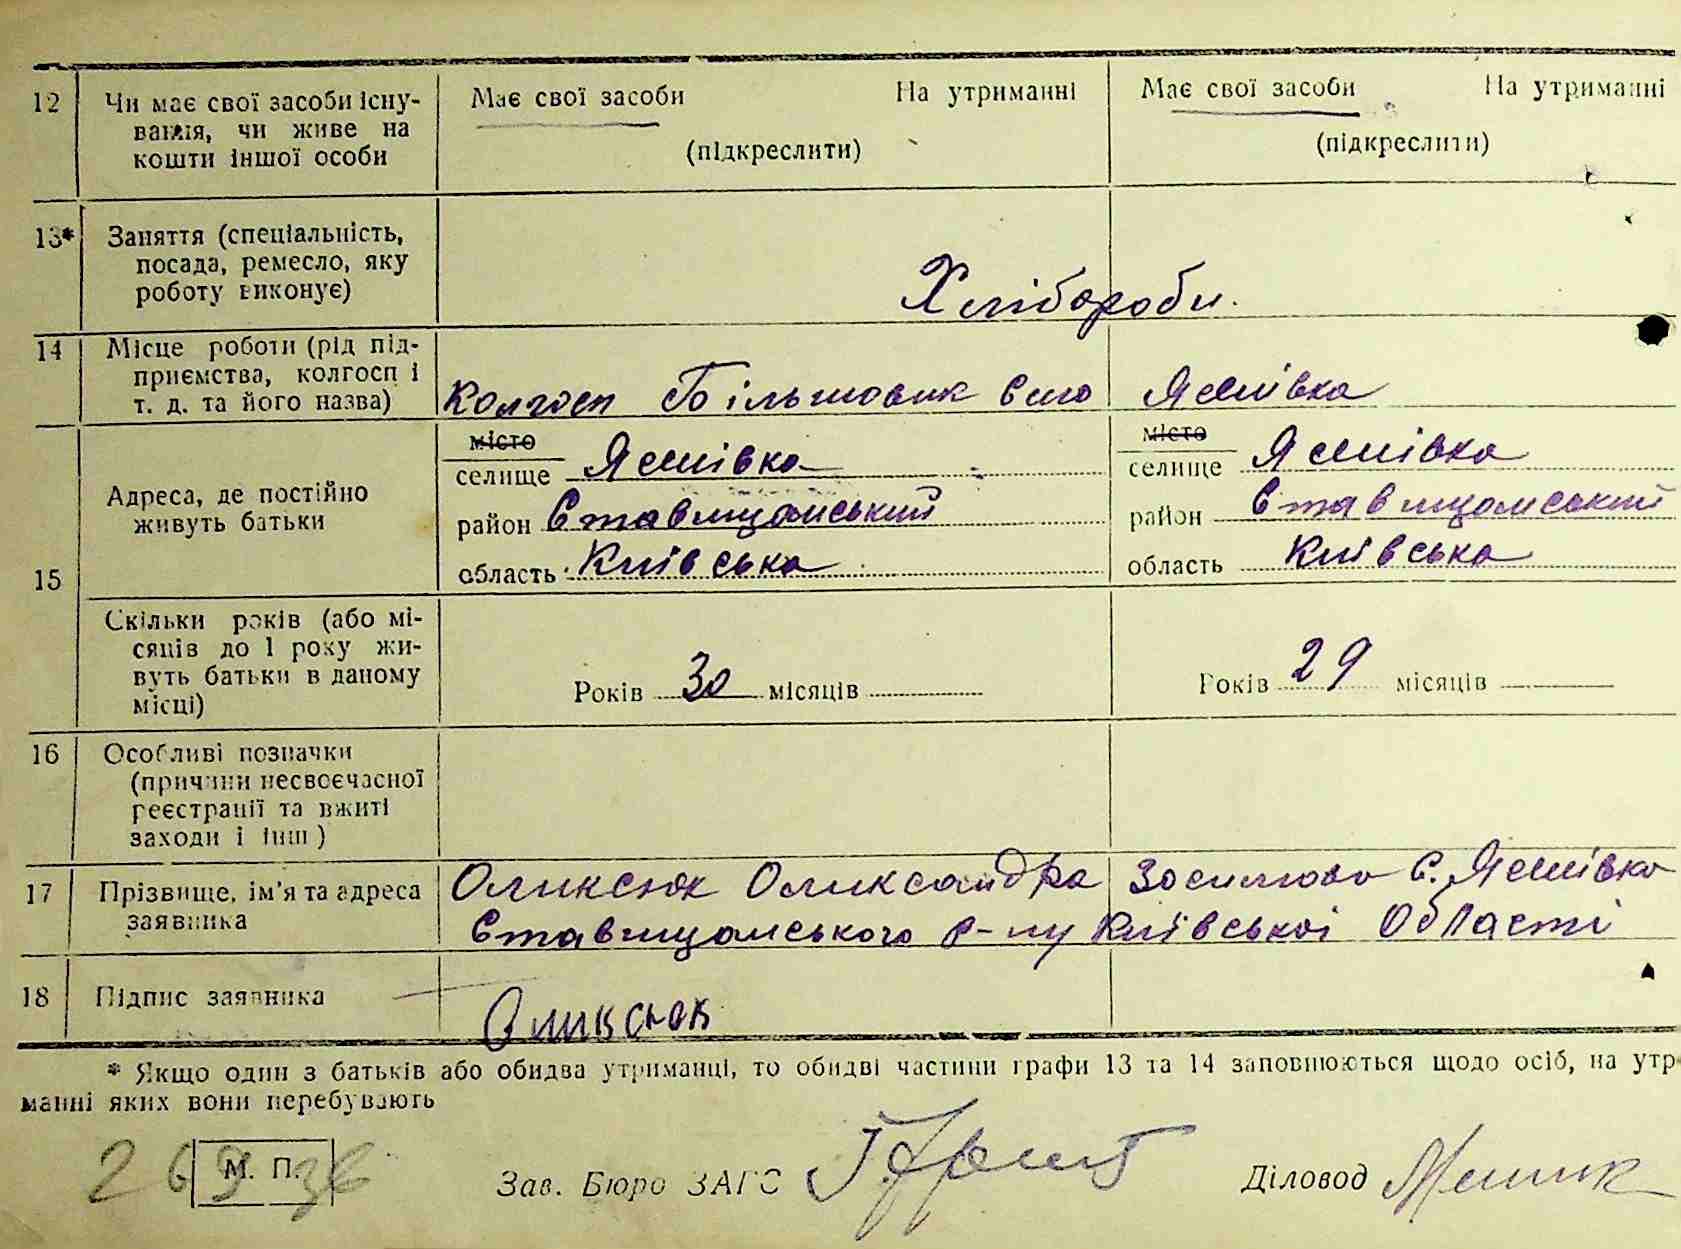 12 Чи має свої засоби існу- Має свої засоби На утриманні Має свої засоби На утриманні
вання, чи живе на
кошти іншої особи (підкреслити) (підкреслити)
13* Заняття (спеціальність,
посада, ремесло, яку
роботу виконує) Хлібороби.
14 Місце роботи (рід під-
приємства, колгосп і
т. д. та його назва) Колгосп Більшовик село Яснівка
місто місто
селище Яснівка селище Яснівка
Адреса, де постійно
живуть батьки район Ставищанський район Ставищанський
15 область Київська область Київська
Скільки років (або мі-
сяців до 1 року жи-
вуть батьки в даному
місці) Років 30 місяців Років 29 місяців
16 Особливі позначки
(причини несвоєчасної
реєстрації та вжиті
заходи і інш)
17 Прізвище, ім'я та адреса
заявника Оликсюк Олександра с. Яснівка
Ставищанського р-ну Київської Області
18 Підпис заявника Оликсюк
* Якщо один з батьків або обидва утриманці, то обидві частини графи 13 та 14 заповнюються щодо осіб, на утр
манні яких вони перебувають
М. П. Зав. Бюро ЗАГС Діловод